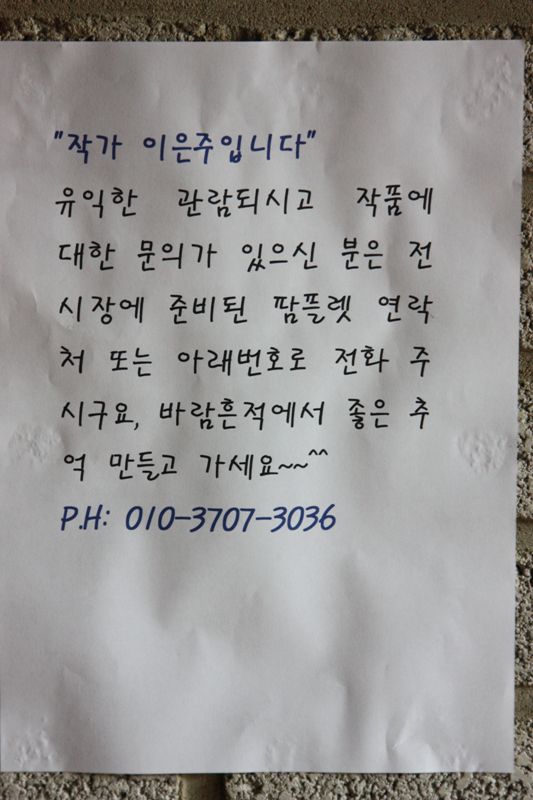 "작가 이은주입니다"
유익한 관람되시고 작품에
대한 문의가 있으신 분은 전
시장에 준비된 팜플렛 연락
처 또는 아래번호로 전화 주
시구요, 바람흔적에서 좋은 추
억 만들고 가세요~~^^
P.H: 010-3707-3036